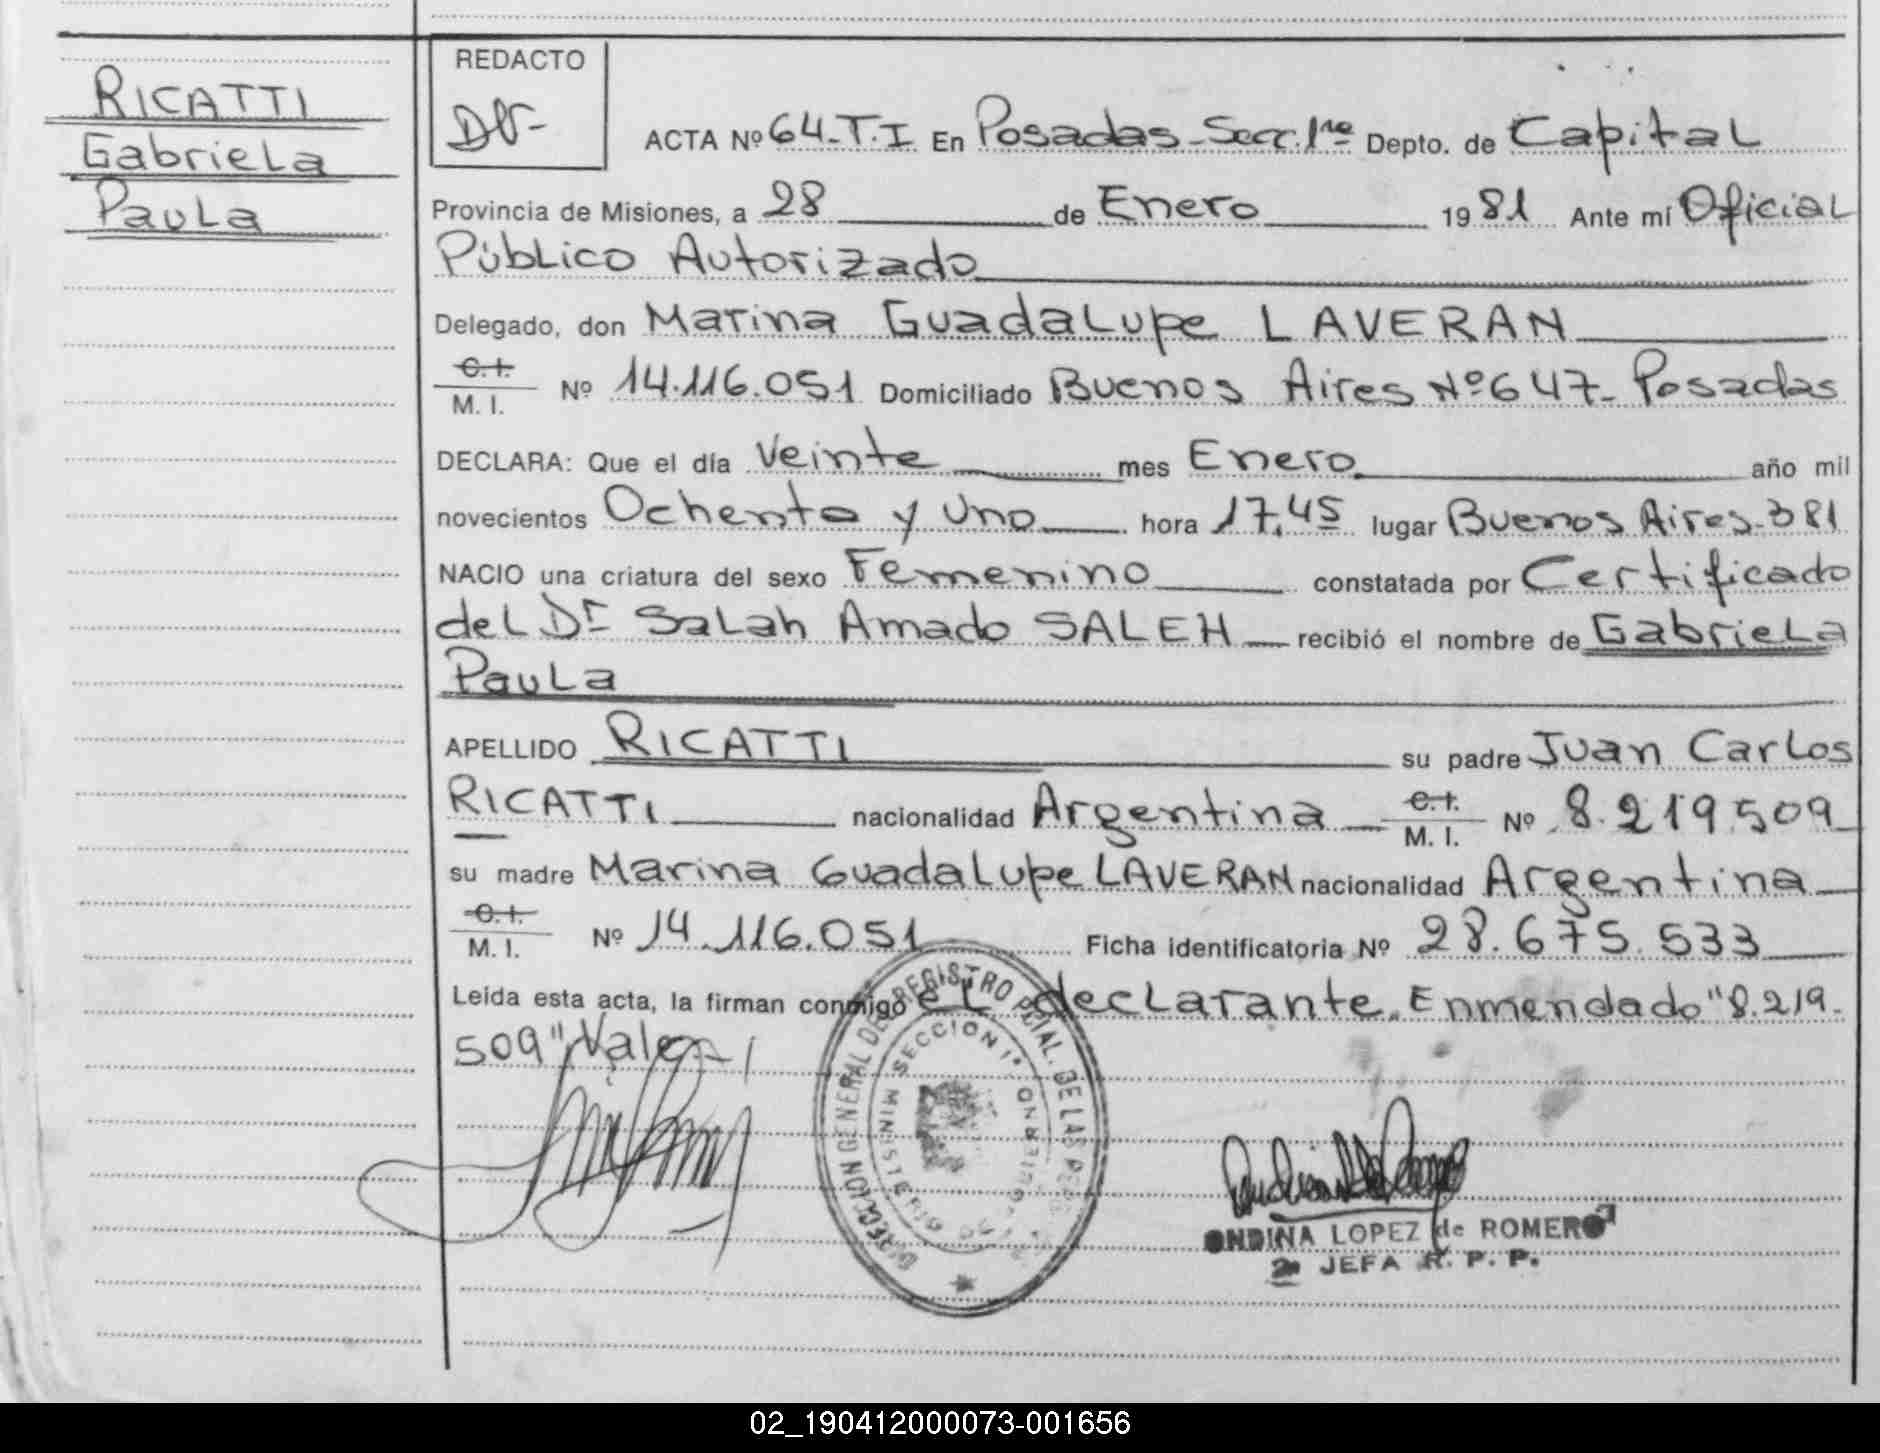 RICATTI
Gabriela
Paula
REDACTO
ACTA Nº 64-T.I En Posadas-Secc.1ra Depto. de Capital
Provincia de Misiones, a 28 de Enero 1981 Ante mí Oficial
Público Autorizado
Delegado, don Marina Guadalupe LAVERAN
C.I.
M. I. Nº 14.116.051 Domiciliado Buenos Aires Nº 647- Posadas
DECLARA: Que el día Veinte mes Enero año mil
novecientos Ochenta y Uno hora 17,45 lugar Buenos Aires-381
NACIO una criatura del sexo Femenino constatada por Certificado
del Dr Salah Amado SALEH recibió el nombre de Gabriela
Paula
APELLIDO RICATTI su padre Juan Carlos
RICATTI nacionalidad Argentina C.I. M. I. Nº 8.219.509
su madre Marina Guadalupe LAVERAN nacionalidad Argentina
C.I.
M. I. Nº 14.116.051 Ficha identificatoria Nº 28.675.533
Leída esta acta, la firman conmigo el declarante. Enmendado "8.219.
509" Vale-
DIRECCION GENERAL DEL REGISTRO PCIAL. DE LAS
SECCION 1º
MINISTERIO DE GOBIERNO
ONDINA LOPEZ de ROMERO
2a JEFA R. P. P.
02_190412000073-001656